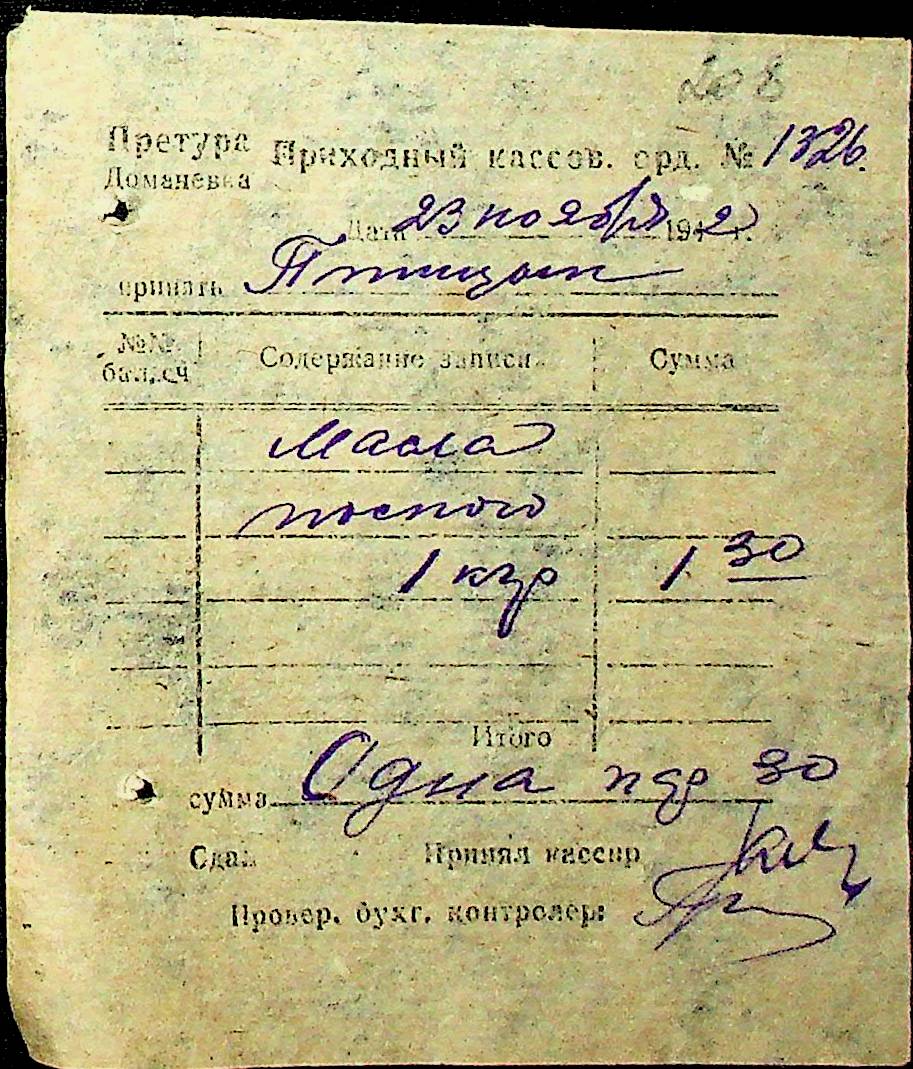 208
Претура
Доманевка
Приходный кассов. орд. № 1326.
Дата 23 ноября 1942 г.
принять Птицын
№№ бал. сч
Содержание записи
Сумма
Масла
постого
1 кгр
1 30
Итого
сумма Одна мар 30
Сдал
Принял кассир
Провер. бухг. контролер: